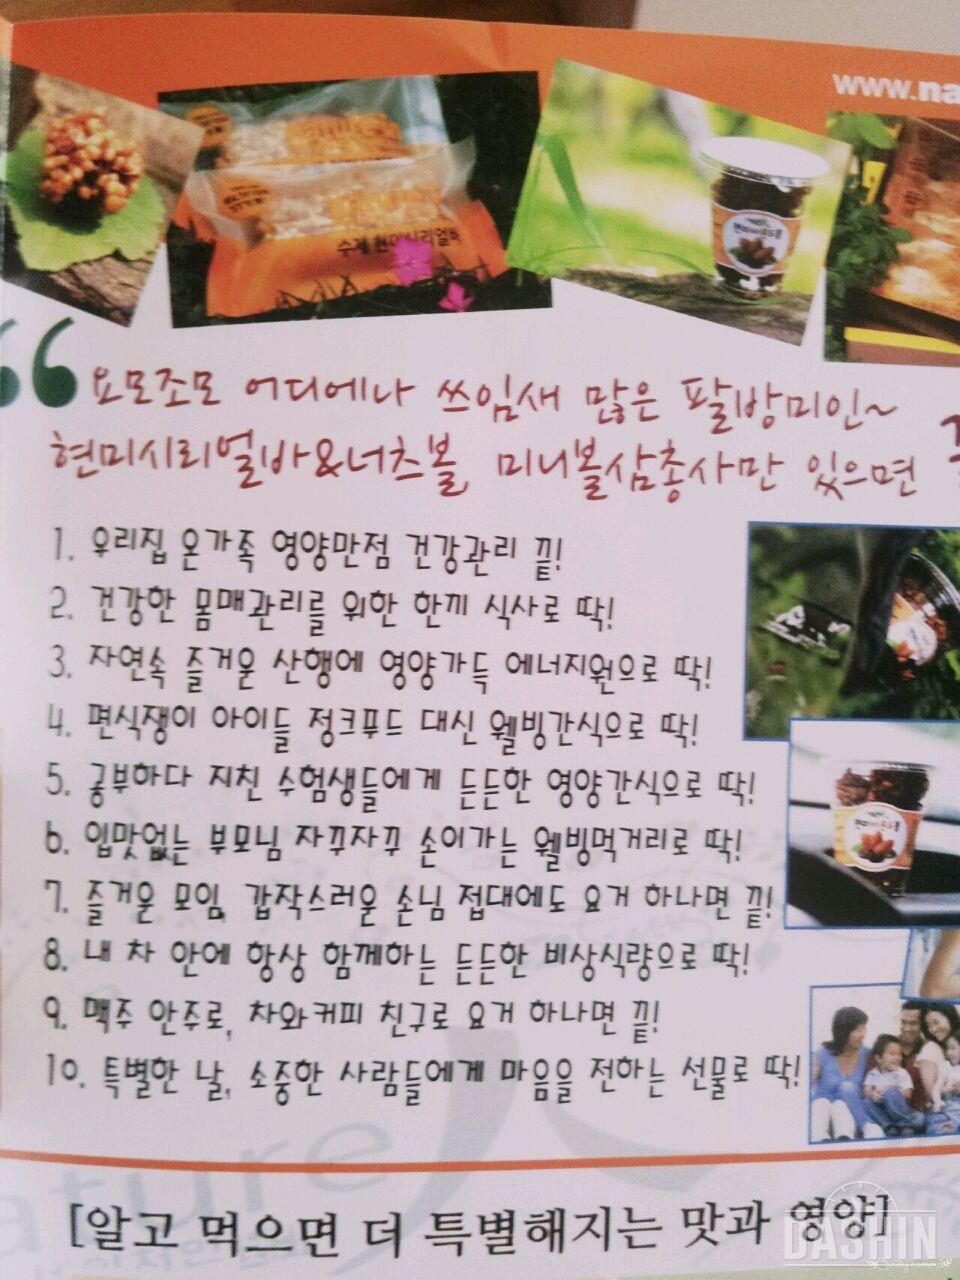 www.na
수제 현미시리얼바
요모조모 어디에나 쓰임새 많은 팔방미인~
현미시리얼바&너츠볼, 미니볼삼총사만 있으면
1. 우리집 온가족 영양만점 건강관리 끝!
2. 건강한 몸매관리를 위한 한끼 식사로 딱!
3. 자연속 즐거운 산행에 영양가득 에너지원으로 딱!
4. 편식쟁이 아이들 정크푸드 대신 웰빙간식으로 딱!
5. 공부하다 지친 수험생들에게 든든한 영양간식으로 딱!
6. 입맛없는 부모님 자꾸자꾸 손이가는 웰빙먹거리로 딱!
7. 즐거운 모임, 갑작스러운 손님 접대에도 요거 하나면 끝!
8. 내 차 안에 항상 함께하는 든든한 비상식량으로 딱!
9. 맥주 안주로, 차와커피 친구로 요거 하나면 끝!
10. 특별한 날, 소중한 사람들에게 마음을 전하는 선물로 딱!
ature
[알고 먹으면 더 특별해지는 맛과 영양]
DASHIN